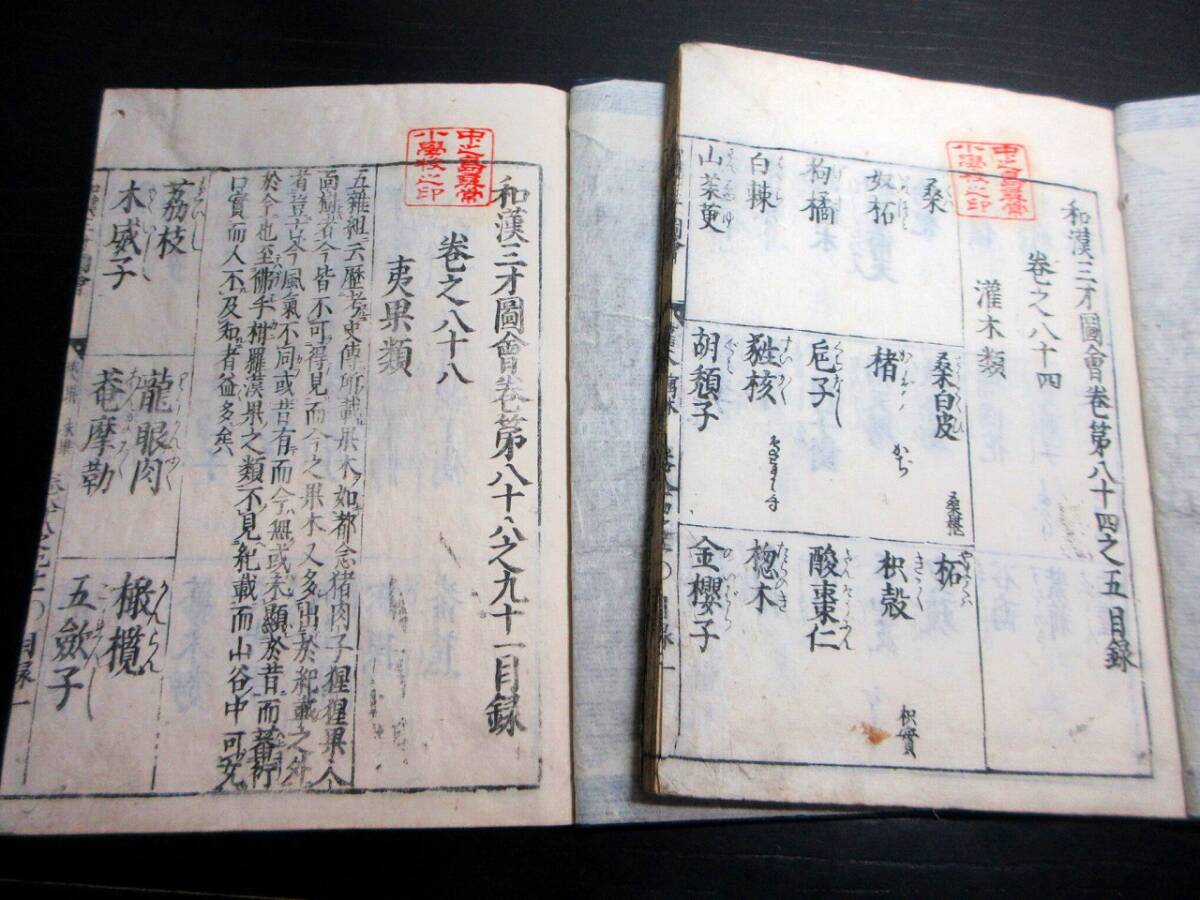 和漢三才圖會卷第八十四之五目録
卷之八十四
灌木類
桑
桑白皮
桑椹
柘
奴柘
楮
かぢ
枳殻
枳實
枸橘
巵子
酸棗仁
白棘
蕤核
楤木
山茱萸
胡頽子
金櫻子
和漢三才圖會卷第八十八之九十一目録
卷之八十八
夷果類
五雜組云歷考史傳所載果木如都念猪肉子猩猩果人
面樹者今皆不可得見而今之果木又多出於紀載之外
者豈古今風氣不同或昔有而今無或未顯於昔而蕃衍
於今也至佛手柑羅漢果之類不見紀載而山谷中可充
口實而人不及知者益多矣
荔枝
龍眼肉
橄欖
木威子
菴摩勒
五斂子
目録一
小學校之印